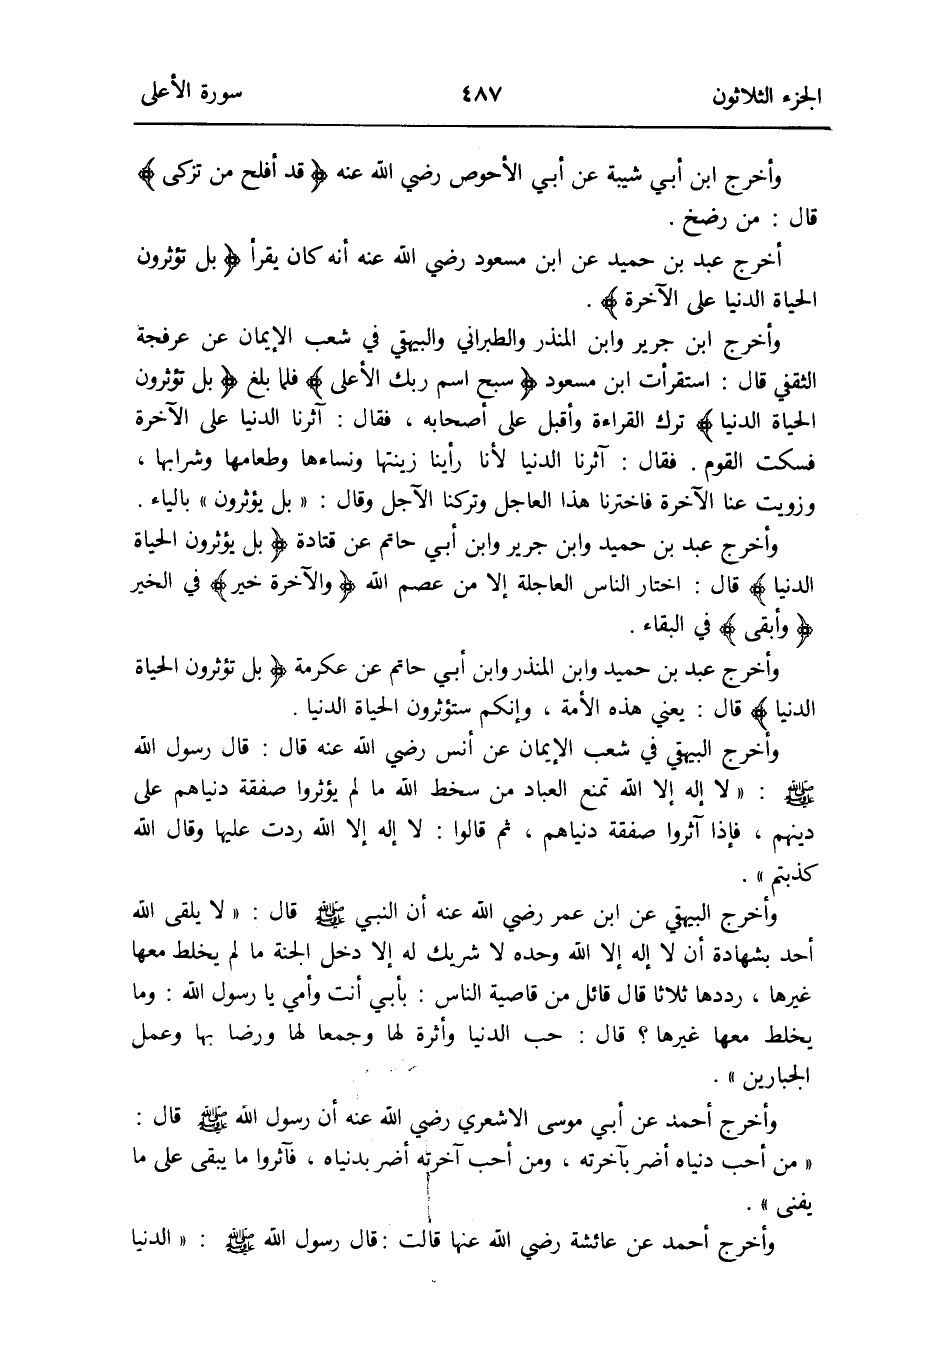 الجزء الثلاثون ٤٨٧ سورة الأعلى
وأخرج ابن أبي شيبة عن أبي الأحوص رضي الله عنه ﴿ قد أفلح من تزكى ﴾
قال : من رضخ .
أخرج عبد بن حميد عن ابن مسعود رضي الله عنه أنه كان يقرأ ﴿ بل تؤثرون
الحياة الدنيا على الآخرة ﴾ .
وأخرج ابن جرير وابن المنذر والطبراني والبيهقي في شعب الإيمان عن عرفجة
الثقفي قال : استقرأت ابن مسعود ﴿ سبح اسم ربك الأعلى ﴾ فلما بلغ ﴿ بل تؤثرون
الحياة الدنيا ﴾ ترك القراءة وأقبل على أصحابه ، فقال : آثرنا الدنيا على الآخرة
فسكت القوم . فقال : آثرنا الدنيا لأنا رأينا زينتها ونساءها وطعامها وشرابها ،
وزويت عنا الآخرة فاخترنا هذا العاجل وتركنا الآجل وقال : « بل يؤثرون » بالياء .
وأخرج عبد بن حميد وابن جرير وابن أبي حاتم عن قتادة ﴿ بل يؤثرون الحياة
الدنيا ﴾ قال : اختار الناس العاجلة إلا من عصم الله ﴿ والآخرة خير ﴾ في الخير
﴿ وأبقى ﴾ في البقاء .
وأخرج عبد بن حميد وابن المنذر وابن أبي حاتم عن عكرمة ﴿ بل تؤثرون الحياة
الدنيا ﴾ قال : يعني هذه الأمة ، وإنكم ستؤثرون الحياة الدنيا .
وأخرج البيهقي في شعب الإيمان عن أنس رضي الله عنه قال : قال رسول الله
ﷺ : « لا إله إلا الله تمنع العباد من سخط الله ما لم يؤثروا صفقة دنياهم على
دينهم ، فإذا آثروا صفقة دنياهم ، ثم قالوا : لا إله إلا الله ردت عليها وقال الله
كذبتم » .
وأخرج البيهقي عن ابن عمر رضي الله عنه أن النبي ﷺ قال : « لا يلقى الله
أحد بشهادة أن لا إله إلا الله وحده لا شريك له إلا دخل الجنة ما لم يخلط معها
غيرها ، رددها ثلاثا قال قائل من قاصية الناس : بأبي أنت وأمي يا رسول الله : وما
يخلط معها غيرها ؟ قال : حب الدنيا وأثرة لها وجمعا لها ورضا بها وعمل
الجبارين » .
وأخرج أحمد عن أبي موسى الاشعري رضي الله عنه أن رسول الله ﷺ قال :
« من أحب دنياه أضر بآخرته ، ومن أحب آخرته أضر بدنياه ، فآثروا ما يبقى على ما
يفنى » .
وأخرج أحمد عن عائشة رضي الله عنها قالت : قال رسول الله ﷺ : « الدنيا